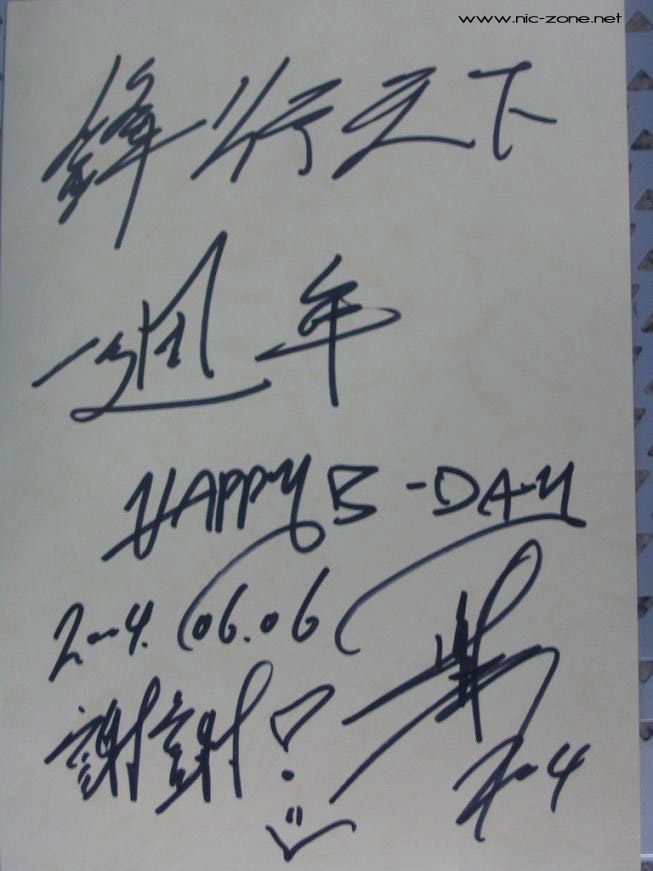 www.nic-zone.net
鋒行天下
一週年
HAPPY B-DAY
2004.06.06
謝謝!
2004